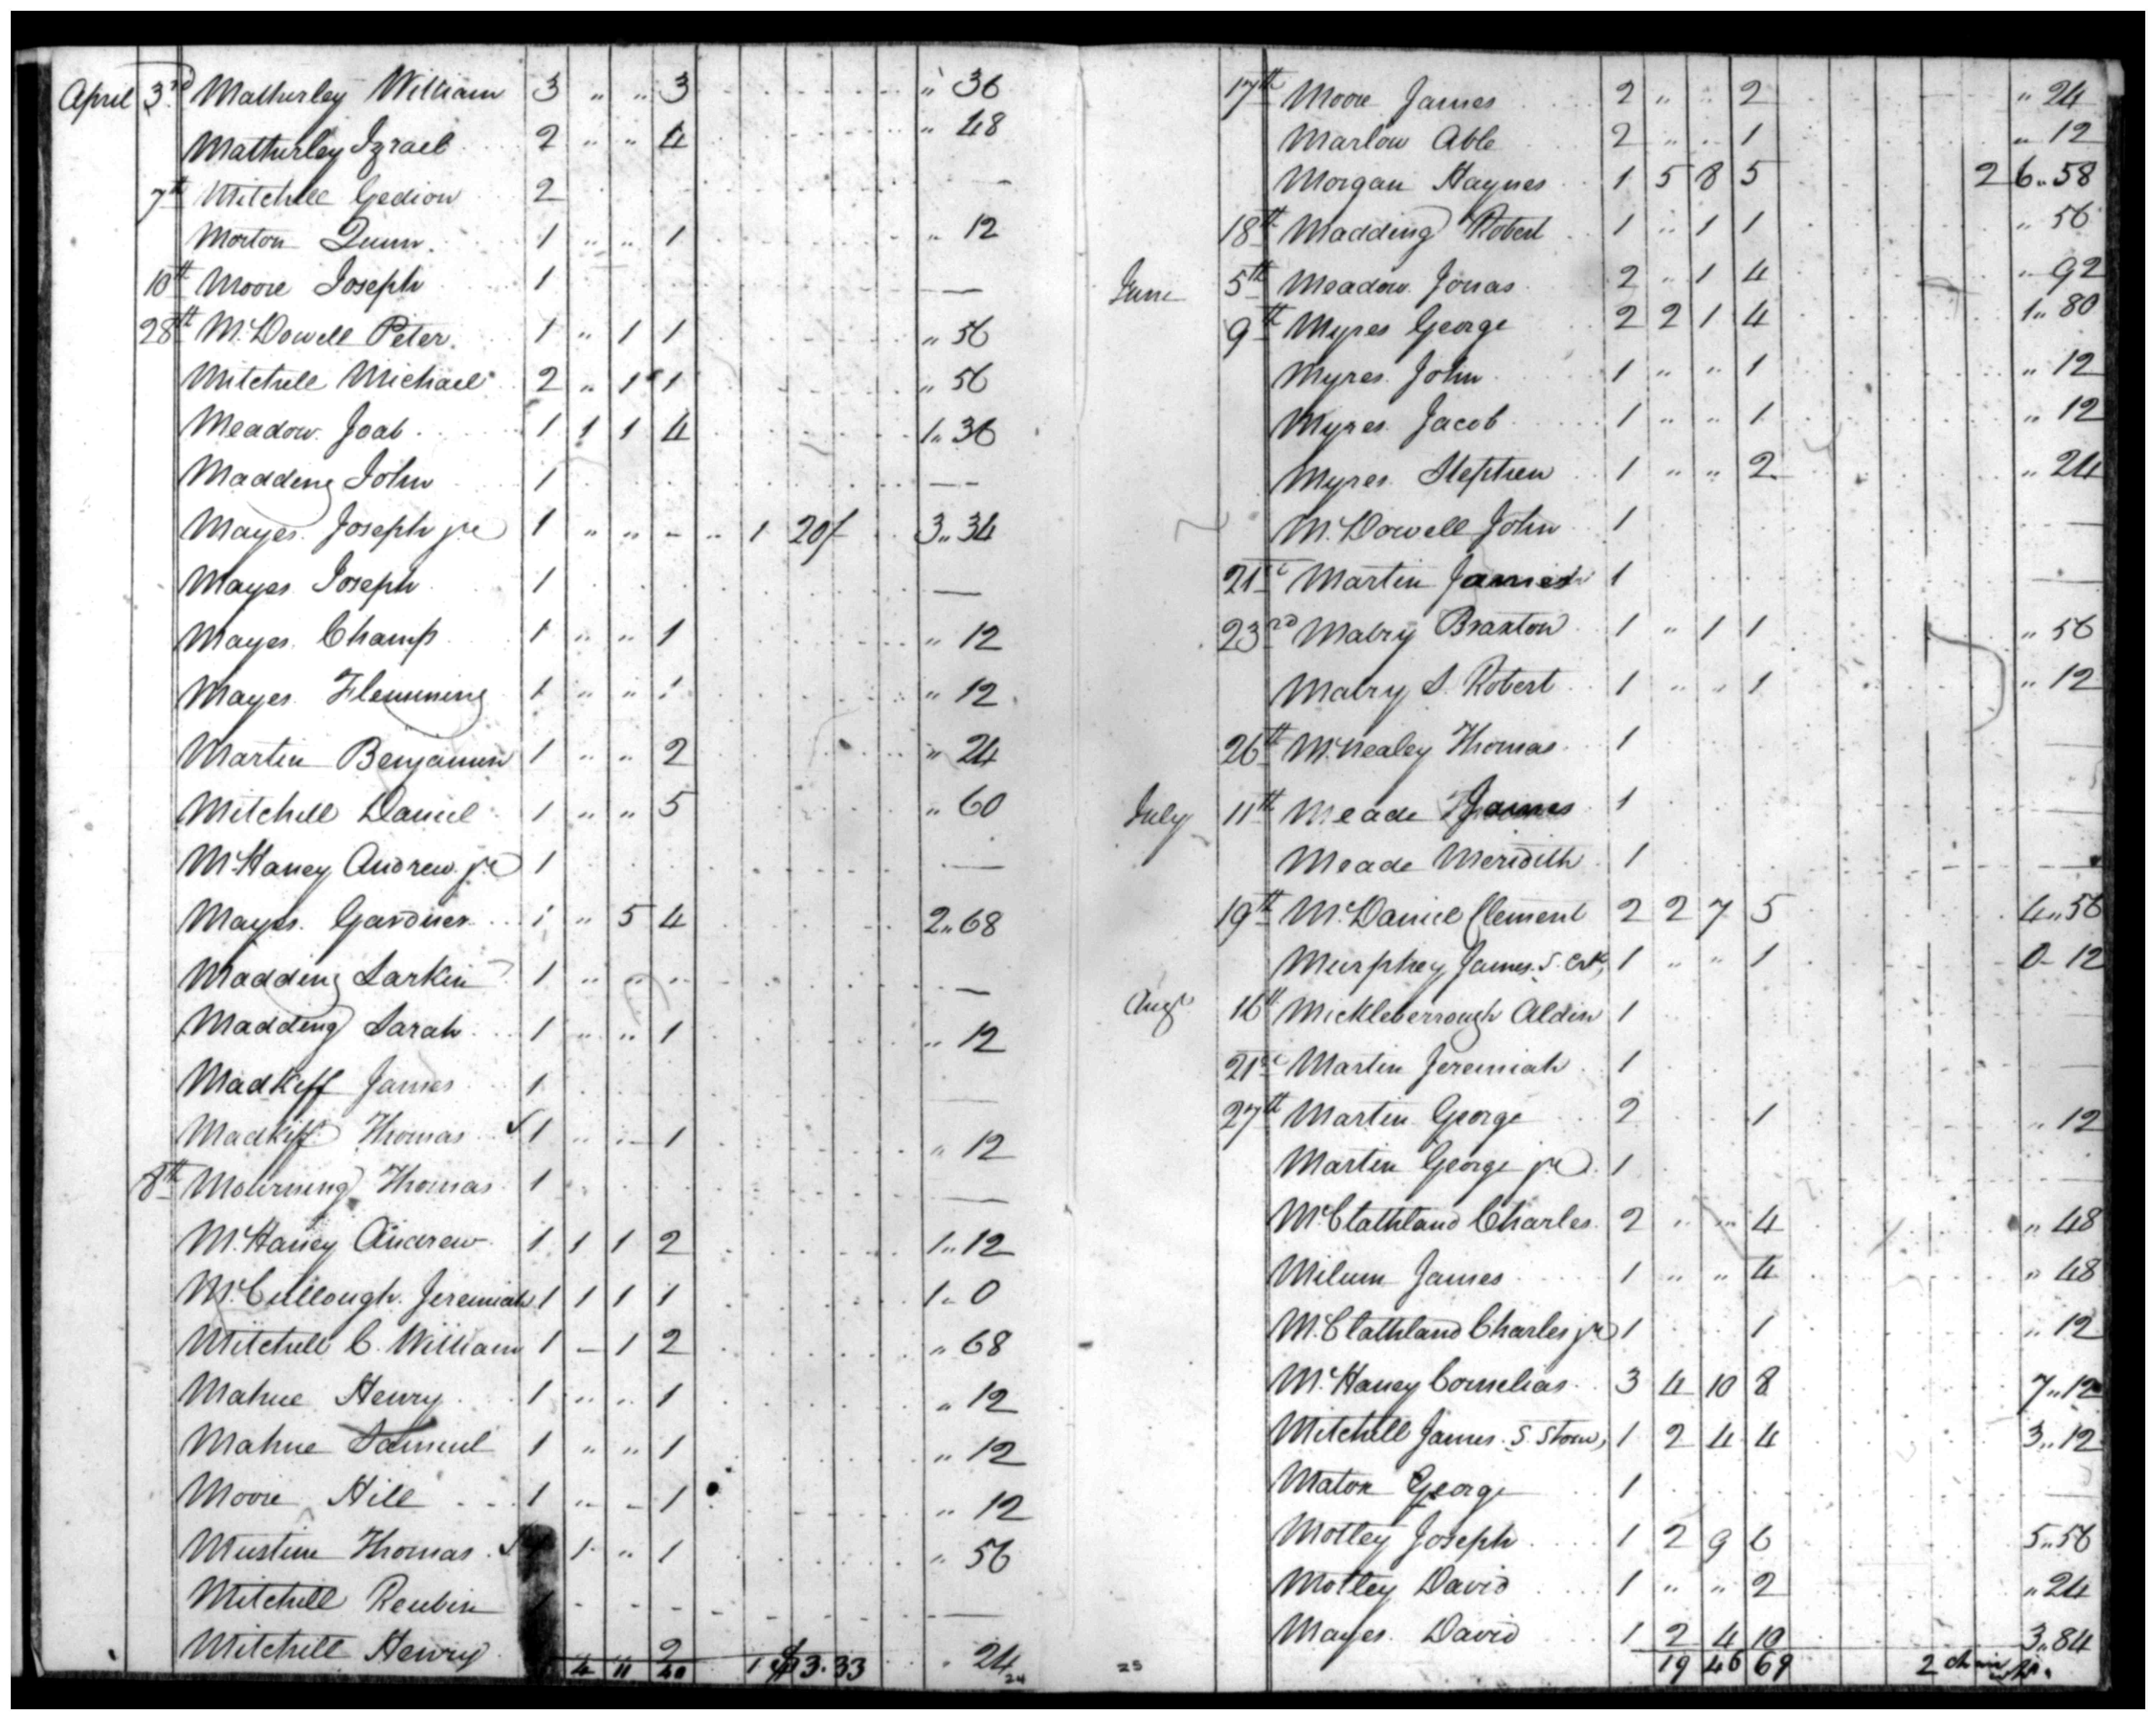 April 3rd Matherley William 3 " " 3 " 36
Matherley Izrael 2 " " 4 " 48
7th Mitchell Gedion 2 —
Morton Quinn 1 " " 1 " 12
10th Moore Joseph 1 —
28th McDowell Peter 1 " 1 1 " 56
Mitchell Michael 2 " 1 1 " 56
Meadow Joab 1 1 1 4 1" 36
Madding John 1 —
Mayes Joseph jr 1 " " - " 1 20/ 3" 34
Mayes Joseph 1 —
Mayes Champ 1 " " 1 " 12
Mayes Flemming 1 " " 1 " 12
Martin Benjamin 1 " " 2 " 24
Mitchell Daniel 1 " " 5 " 60
McHaney Andrew jr 1 —
Mayes Gardner 1 " 5 4 2" 68
Madding Larkin 1 " " " —
Madding Sarah 1 " " 1 " 12
Madkiff James 1 —
Madkiff Thomas 1 " " 1 " 12
8th Mourning Thomas 1 —
McHaney Andrew 1 1 1 2 1" 12
McCullough Jeremiah 1 1 1 1 1" 0
Mitchell C. William 1 - 1 2 " 68
Mahue Henry 1 " " 1 " 12
Mahue Samuel 1 " " 1 " 12
Moore Hill 1 " - 1 " 12
Mustin Thomas 1 " 1 " 56
Mitchell Reubin —
Mitchell Henry 2 " 24
4 11 40 1 $3.33 24
17th Moore James 2 " " 2 " 24
Marlow Able 2 " " 1 " 12
Morgan Haynes 1 5 8 5 2 6" 58
18th Madding Robert 1 " 1 1 " 56
June 5th Meadow Jonas 2 " 1 4 " 92
9th Myres George 2 2 1 4 1" 80
Myres John 1 " " 1 " 12
Myres Jacob 1 " " 1 " 12
Myres Stephen 1 " " 2 " 24
McDowell John 1 —
21st Martin James 1 —
23rd Mabry Braxton 1 " 1 1 " 56
Mabry S. Robert 1 " " 1 " 12
26th McNealey Thomas 1 —
July 11th Meade James 1 —
Meade Meridith 1 —
19th McDaniel Clement 2 2 7 5 4" 56
Murphey James S. Crk, 1 " " 1 0- 12
Augt 16th Mickleberrough Aldin 1 —
21st Martin Jeremiah 1 —
27th Martin George 2 1 " 12
Martin George jr 1 —
McClathland Charles 2 " " 4 " 48
Milum James 1 " " 4 " 48
McClathland Charles jr 1 1 " 12
McHaney Cornelias 3 4 10 8 7" 12
Mitchell James S. Stone, 1 2 4 4 3" 12
Maton George 1 —
Motley Joseph 1 2 9 6 5" 56
Motley David 1 " " 2 " 24
Mayes David 1 2 4 10 3" 84
25 19 46 69 2